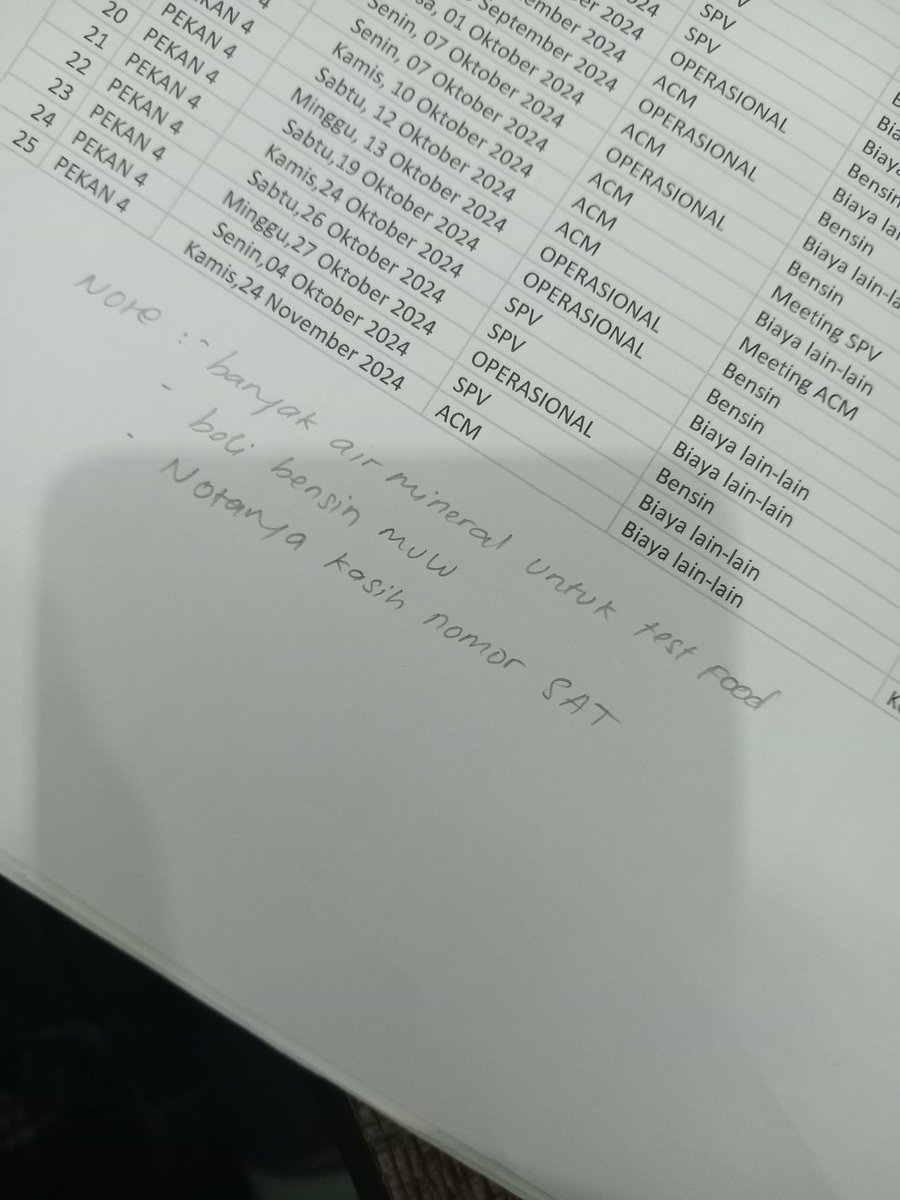 SPV
SPV Biaya
2024 OPERASIONAL Bensin
2024 ACM Biaya la
September 2024 OPERASIONAL Bensin
01 Oktober 2024 ACM Biaya lain-la
Senin, 07 Oktober 2024 OPERASIONAL Bensin
Senin, 07 Oktober 2024 ACM Meeting SPV
4 Kamis, 10 Oktober 2024 ACM Biaya lain-lain
KAN 4 Sabtu, 12 Oktober 2024 ACM Meeting ACM
PEKAN 4 Minggu, 13 Oktober 2024 OPERASIONAL Bensin
20 PEKAN 4 Sabtu,19 Oktober 2024 OPERASIONAL Bensin
21 PEKAN 4 Kamis,24 Oktober 2024 SPV Biaya lain-lain
22 PEKAN 4 Sabtu,26 Oktober 2024 SPV Biaya lain-lain
23 PEKAN 4 Minggu,27 Oktober 2024 OPERASIONAL Bensin
24 PEKAN 4 Senin,04 Oktober 2024 SPV Biaya lain-lain
25 PEKAN 4 Kamis,24 November 2024 ACM Biaya lain-lain
Note : - banyak air mineral untuk test Food
- boli bensin MUW
- Notanya kasih nomor SAT